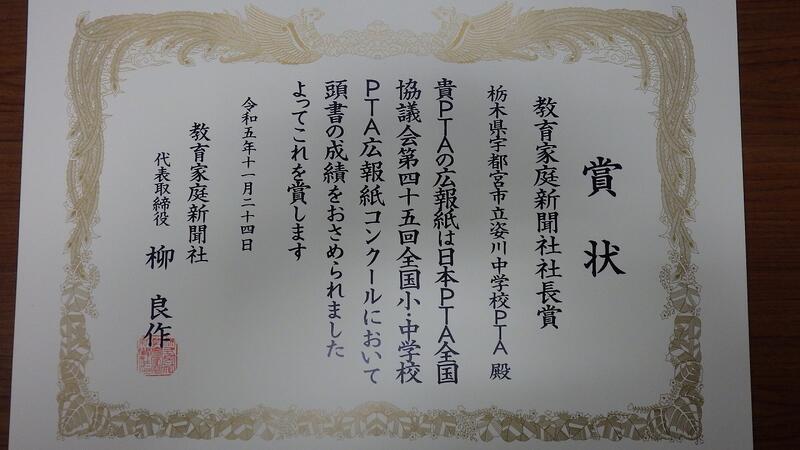 賞状
教育家庭新聞社社長賞
栃木県宇都宮市立姿川中学校PTA 殿
貴PTAの広報紙は日本PTA全国
協議会第四十五回全国小・中学校
PTA広報紙コンクールにおいて
頭書の成績をおさめられました
よってこれを賞します
令和五年十一月二十四日
教育家庭新聞社
代表取締役 柳 良作